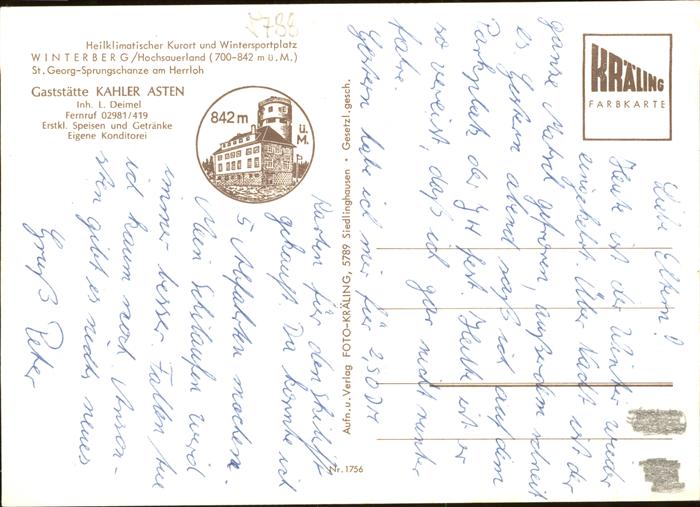 2788
Heilklimatischer Kurort und Wintersportplatz
WINTERBERG/Hochsauerland (700-842 m ü.M.)
St. Georg-Sprungschanze am Herrloh
Gaststätte KAHLER ASTEN
Inh. L. Deimel
Fernruf 02981/419
Erstkl. Speisen und Getränke
Eigene Konditorei
842 m
ü.
M.
Aufn. u. Verlag FOTO-KRÄLING, 5789 Siedlinghausen · Gesetzl. gesch.
Nr. 1756
KRÄLING
FARBKARTE
Liebe Eltern!
Heute ist der Winter wieder
eingekehrt. Über Nacht ist der
ganze Matsch gefroren, außerdem schneit
es. Gestern abend saß ich auf dem
Parkplatz der JH fest. Heute ist er
so vereist, daß ich gar nicht runter
fahre.
Gestern habe ich mir für 2,50 DM
Karten für den Skilift
gekauft. Da konnte ich
5 Abfahrten machen.
Mein Schilaufen wird
immer besser. Fallen tue
ich kaum noch. Anson-
sten gibt es nichts neues
Gruß Peter